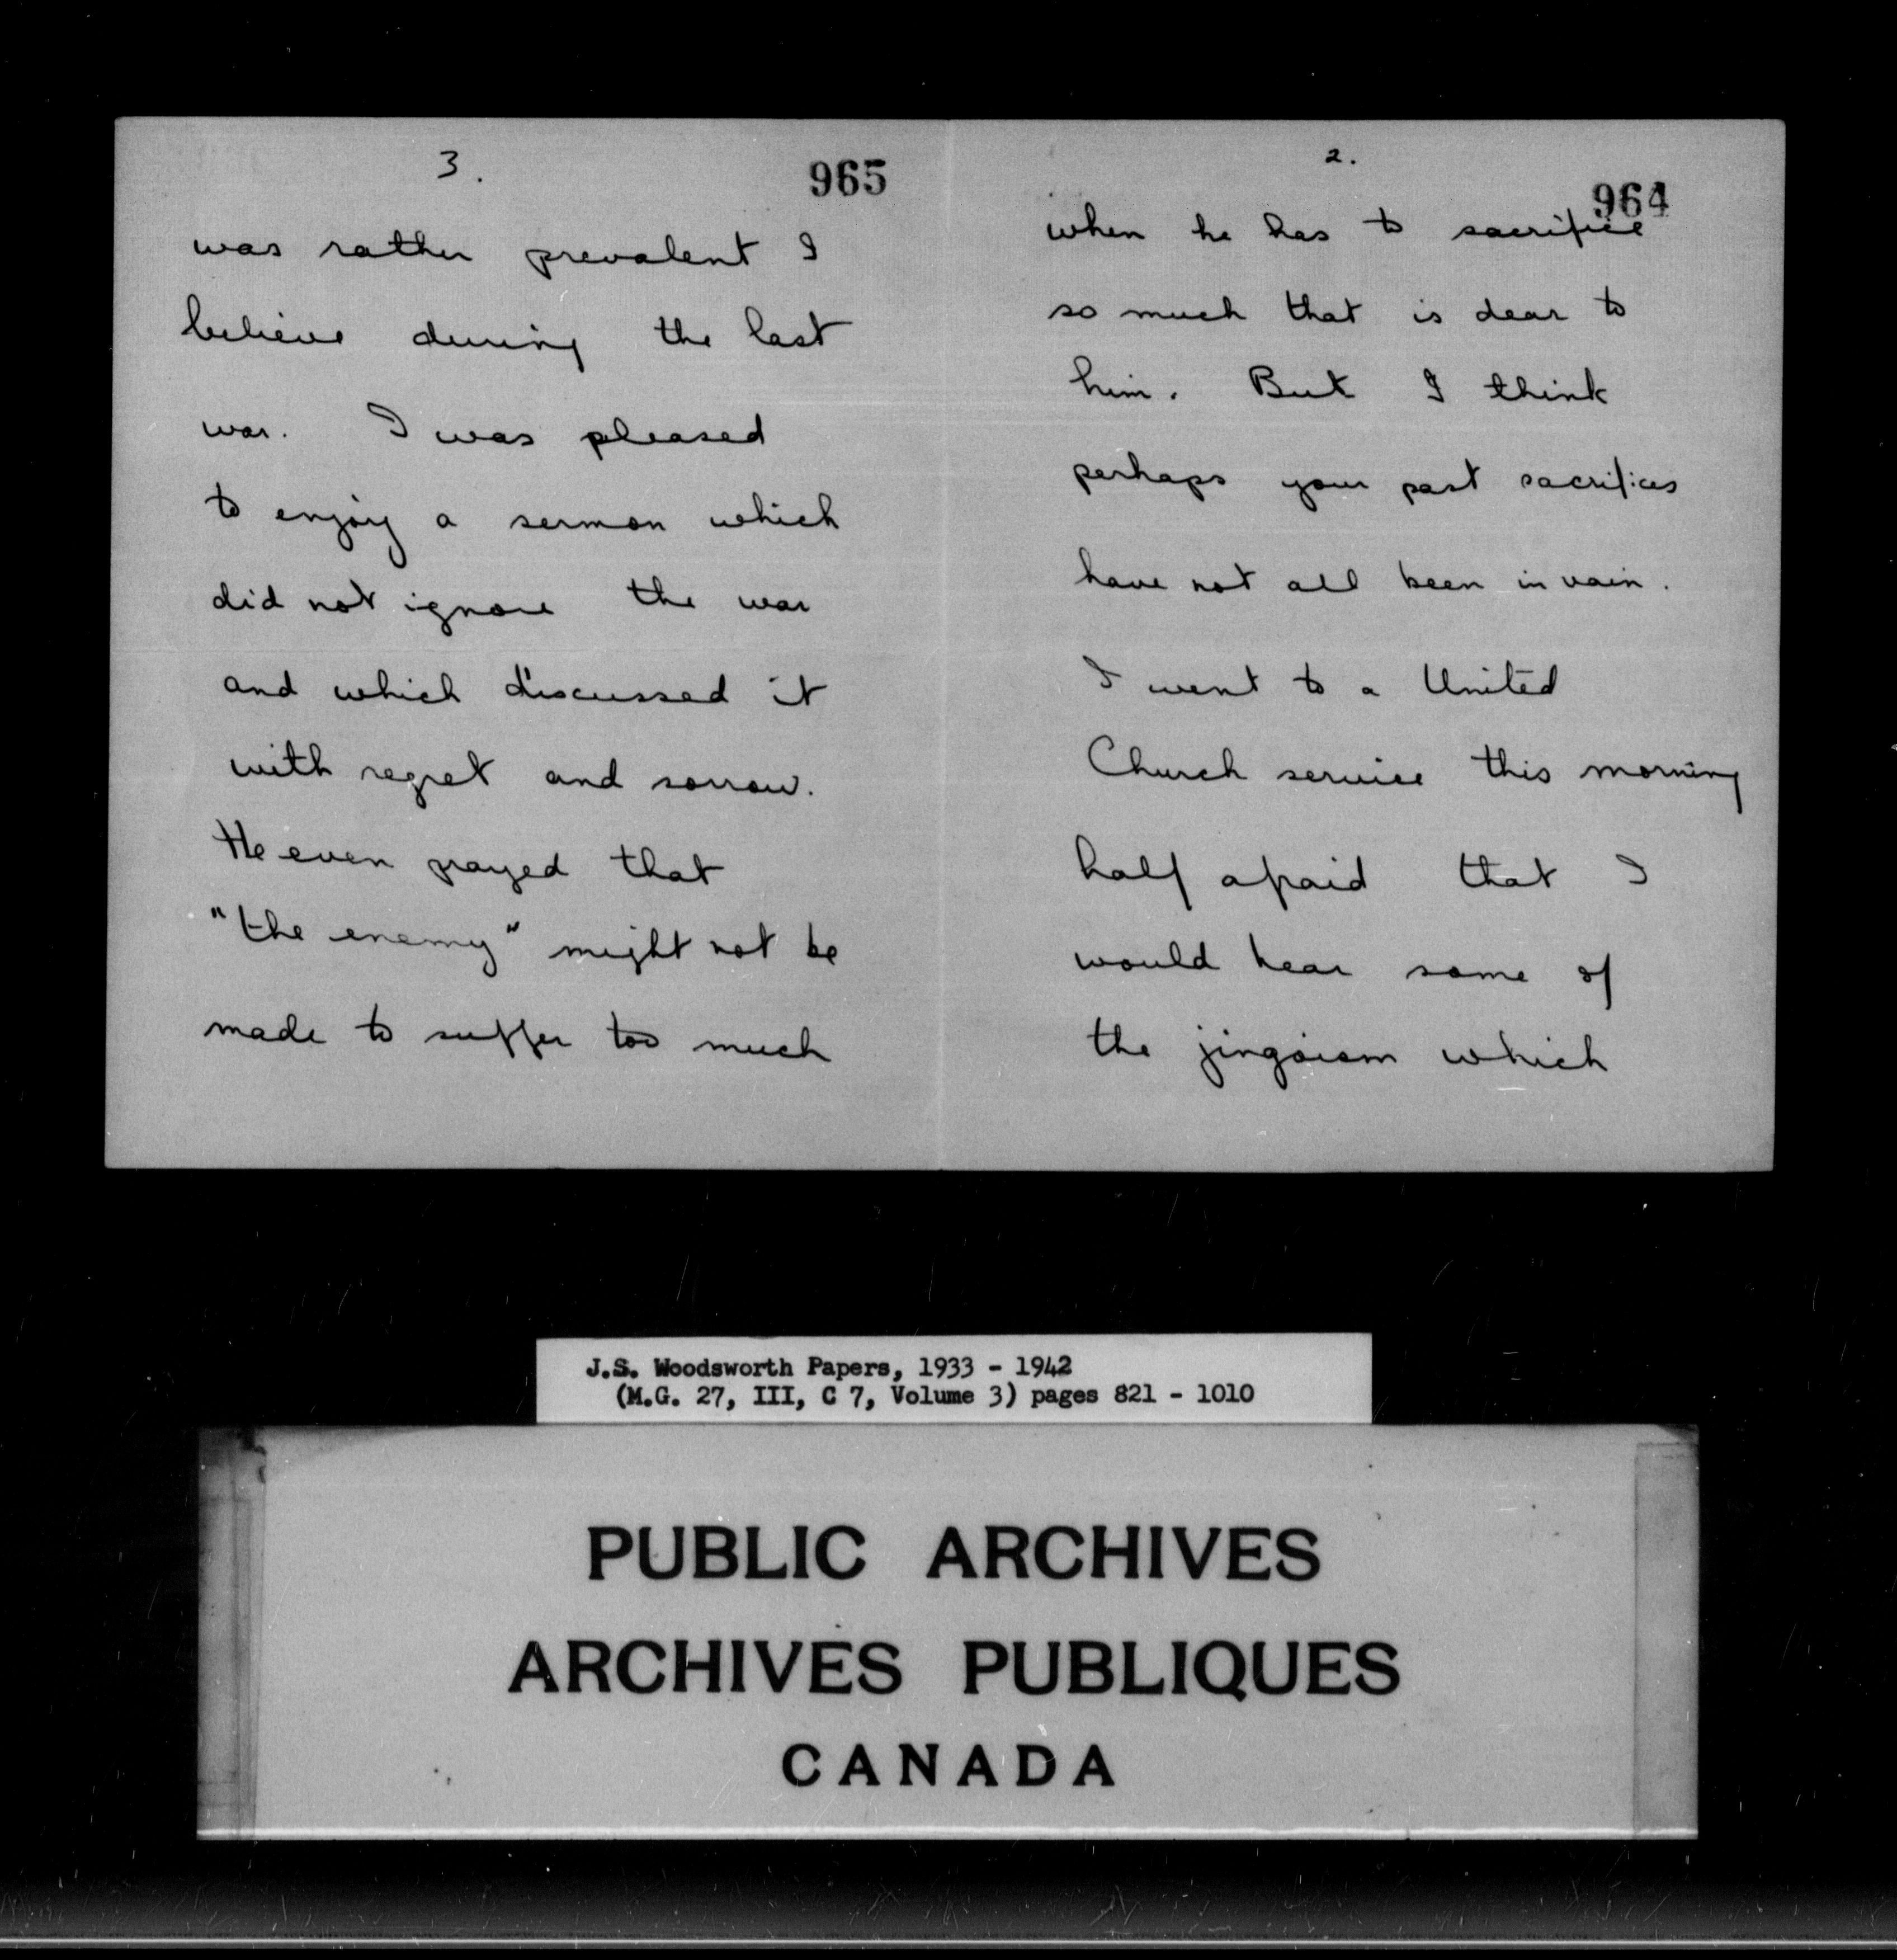 3.
965
was rather prevalent I
believe during the last
war. I was pleased
to enjoy a sermon which
did not ignore the war
and which discussed it
with regret and sorrow.
He even prayed that
"the enemy" might not be
made to suffer too much
2.
964
when he has to sacrifice
so much that is dear to
him. But I think
perhaps your past sacrifices
have not all been in vain.
I went to a United
Church service this morning
half afraid that I
would hear some of
the jingoism which
J.S. Woodsworth Papers, 1933 - 1942
(M.G. 27, III, C 7, Volume 3) pages 821 - 1010
PUBLIC ARCHIVES
ARCHIVES PUBLIQUES
CANADA